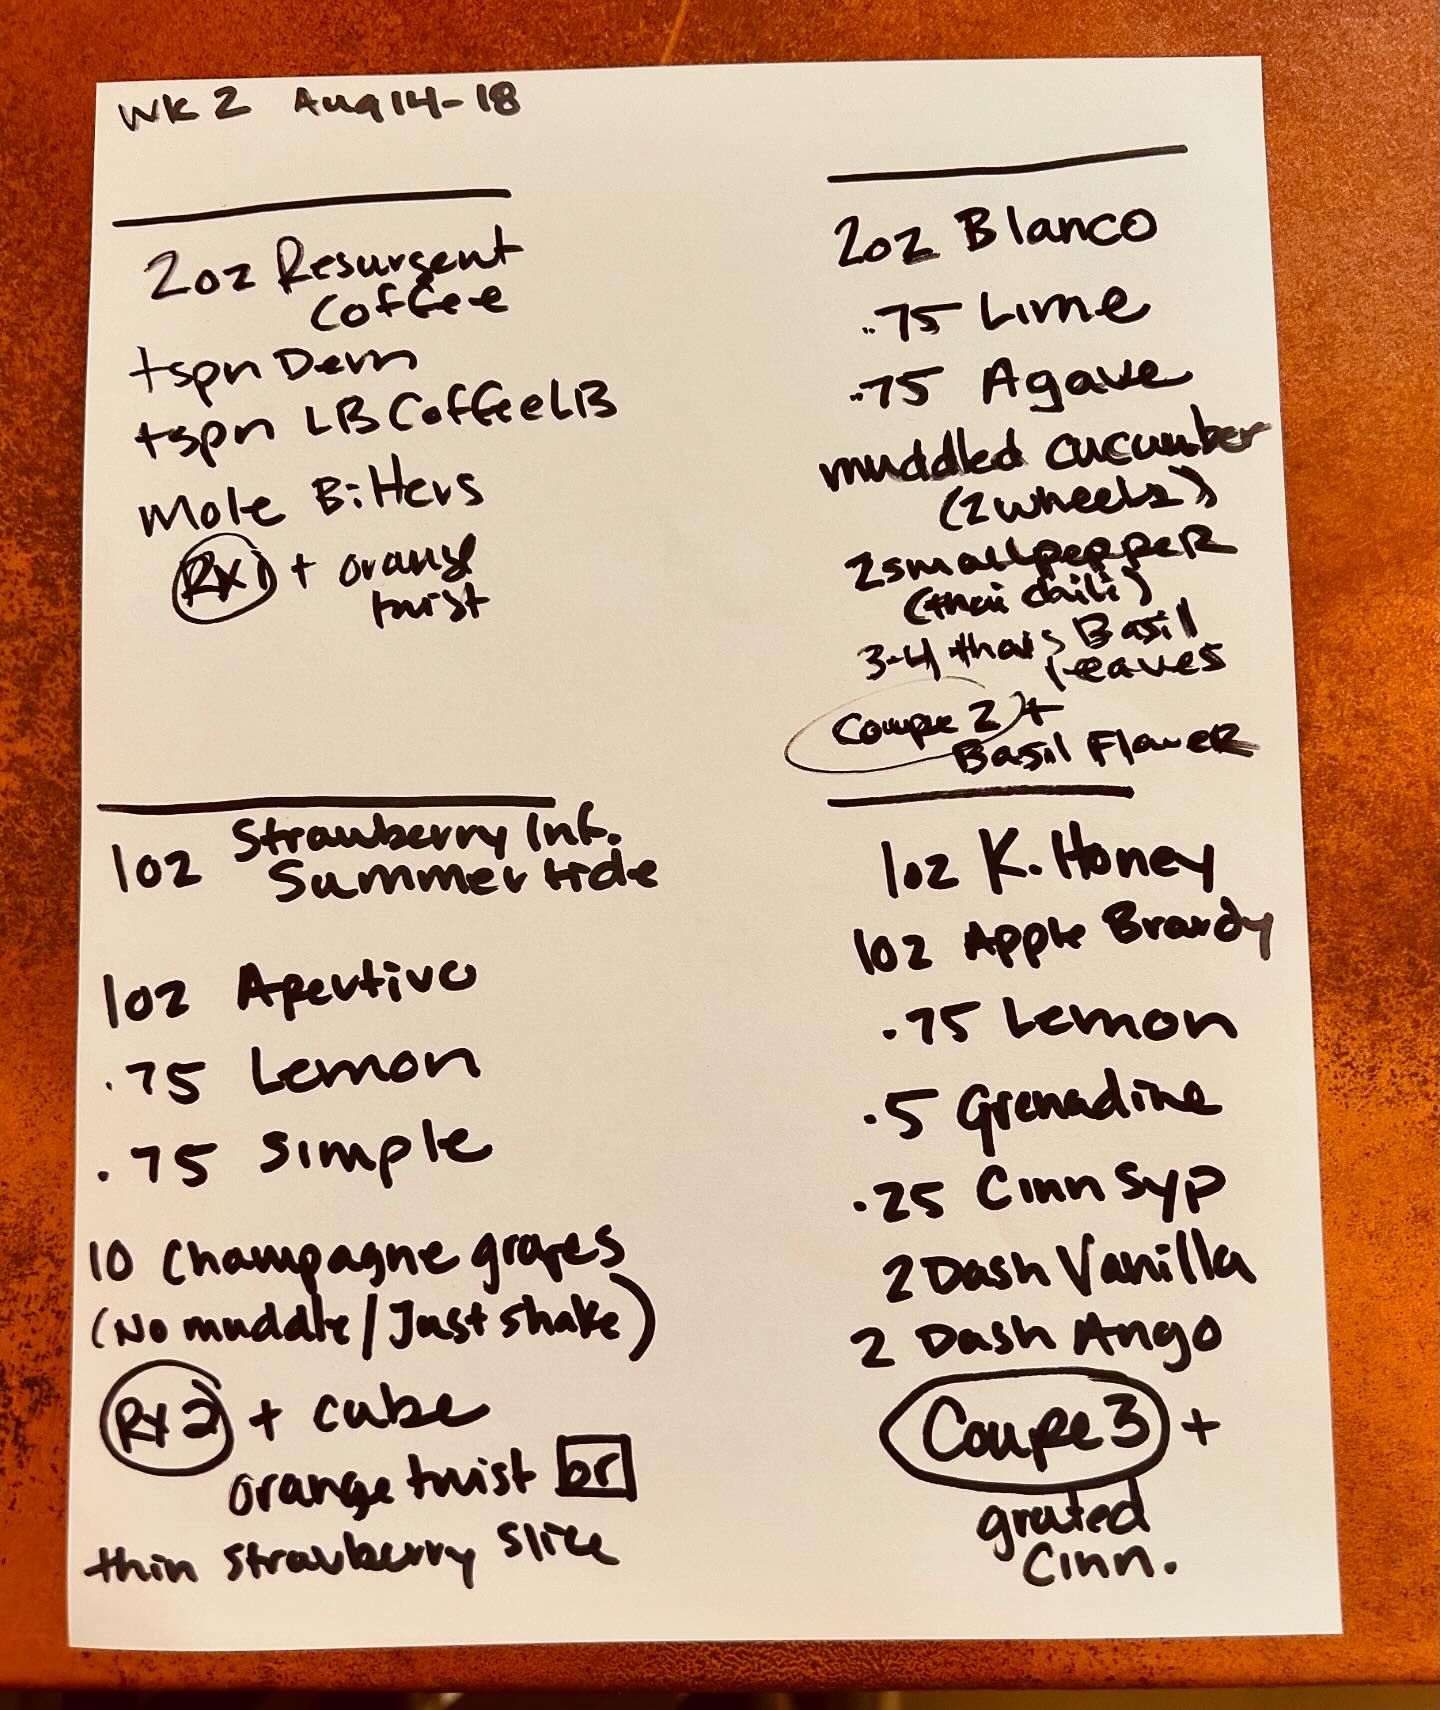 WK 2 Aug 14-18
2oz Resurgent
Coffee
tspn Dem
tspn LB Coffee LB
Mole Bitters
Rx1 + orange
twist
2oz Blanco
.75 Lime
.75 Agave
muddled cucumber
(2 wheels)
2 small pepper
(thai chili)
3-4 thai Basil
leaves
Coupe 2 +
Basil Flower
1oz Strawberry Inf.
Summertide
1oz Apertivo
.75 Lemon
.75 Simple
10 Champagne grapes
(No muddle/Just shake)
Rx 2 + cube
orange twist or
thin strawberry slice
1oz K. Honey
1oz Apple Brandy
.75 Lemon
.5 Grenadine
.25 Cinn Syp
2 Dash Vanilla
2 Dash Ango
Coupe 3 +
grated
Cinn.